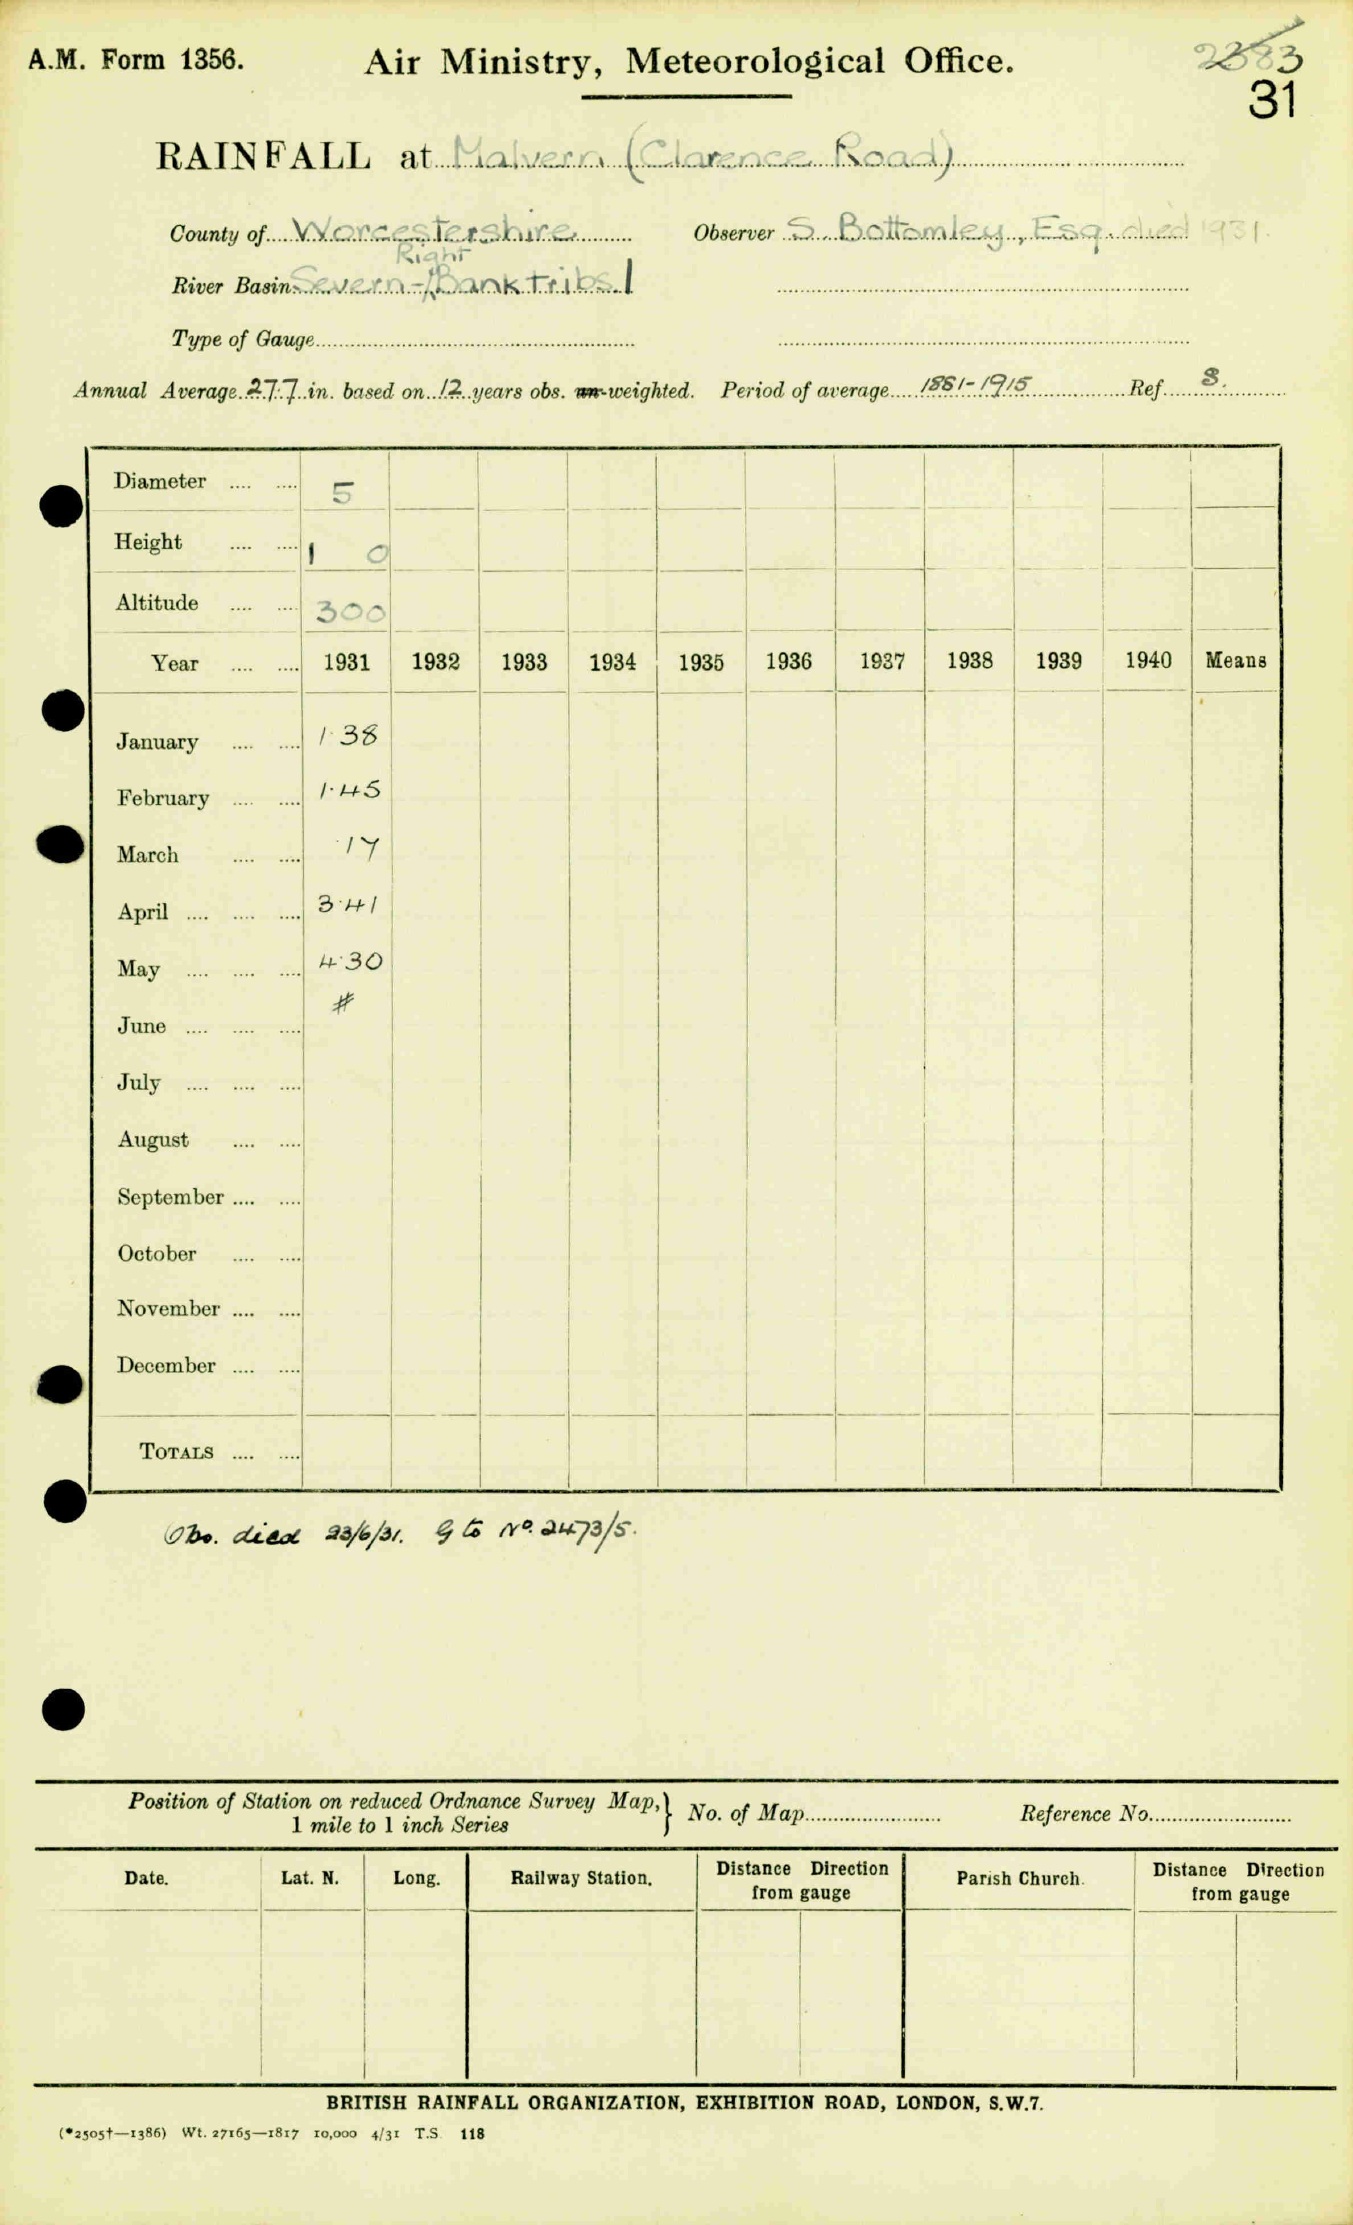 A.M. Form 1356.
Air Ministry, Meteorological Office.
2383
31
RAINFALL at Malvern (Clarence Road)
County of Worcestershire
Observer S. Bottomley, Esq. died 1931.
River Basin Severn-Right Bank tribs 1
Type of Gauge
Annual Average 27.7 in. based on 12 years obs. un-weighted. Period of average 1881-1915 Ref. 8.
Diameter .... .... 5
Height .... .... 1 0
Altitude .... .... 300
Year .... .... 1931 1932 1933 1934 1935 1936 1937 1938 1939 1940 Means
January .... .... 1.38
February .... .... 1.45
March .... .... .17
April .... .... .... 3.41
May .... .... .... 4.30
June .... .... .... #
July .... .... ....
August .... ....
September .... ....
October .... ....
November .... ....
December .... ....
TOTALS .... ....
Obs. died 23/6/31. G to No. 2473/5.
Position of Station on reduced Ordnance Survey Map, 1 mile to 1 inch Series } No. of Map Reference No.
Date. Lat. N. Long. Railway Station. Distance Direction from gauge Parish Church. Distance Direction from gauge
BRITISH RAINFALL ORGANIZATION, EXHIBITION ROAD, LONDON, S.W.7.
(*2505†—1386) Wt. 27165—1817 10,000 4/31 T.S. 118